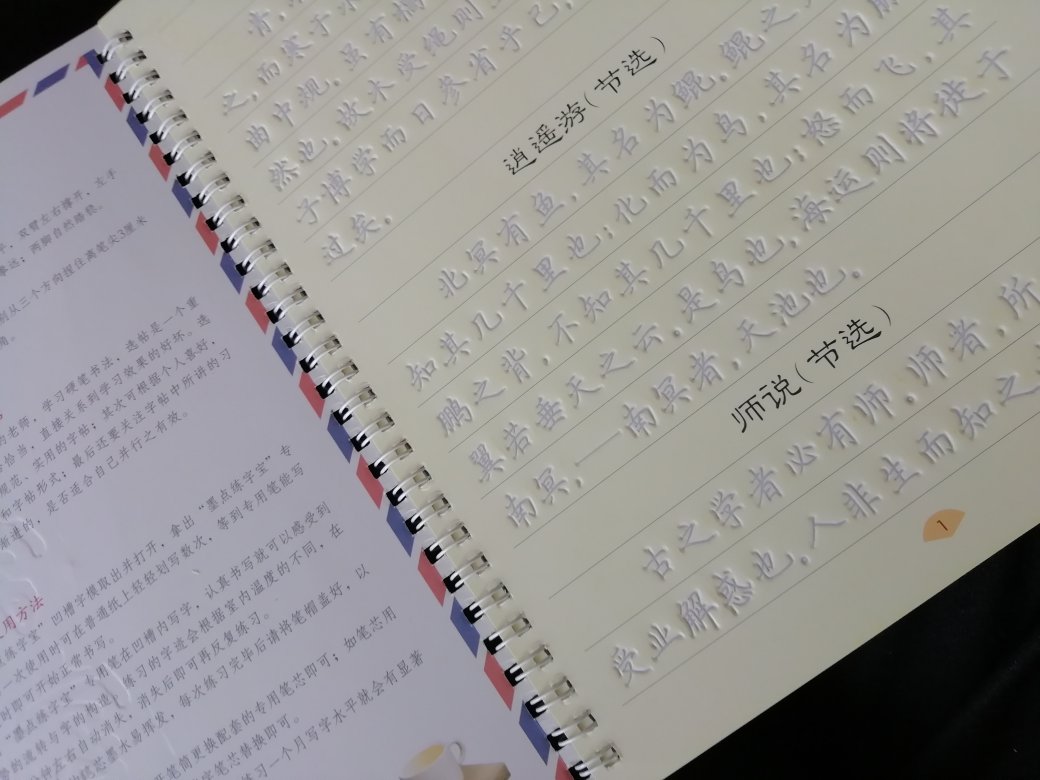 平，双臂左右撑开，左手
两脚自然踏袋。
别从三个方向捏住离笔尖3厘米
角。
的老师，学习硬笔书法，选帖是一个重
恰当，直接关系到学习效果的好坏。选
规范、实用的字帖；其次可根据个人喜好，
和字帖形式；最后还要关注字帖中所讲的习
渐进的，是否适合自己并行之有效。
用方法
练字宝”凹槽字模取出并打开，拿出“墨点练字宝”专
一次使用时可在普通纸上轻轻划写数次，等到专用笔能写
时即可开的正常书写。
“墨点练字宝”专用笔在凹槽内写字，认真书写就可以感受到
的运转与字的构造，练习的字迹会根据室内温度的不同，在
钟左右自动消失，消失后即可再反复练习。
墨水易挥发，每次练习完毕后请将笔帽盖好，以
笔筒更换配套的专用笔芯即可；如笔芯用
笔芯替换即可。
练习一个月写字水平就会有显著
青，
之，而寒于水
曲中规，虽有槁
然也。故木受绳则
子博学而日参省乎己，
过矣。
逍遥游（节选）
北冥有鱼，其名为鲲，鲲之
知其几千里也；化而为鸟，其名为鹏
鹏之背，不知其几千里也；怒而飞，其
翼若垂天之云，是鸟也，海运则将徙于
南冥，——南冥者，天池也。
师说（节选）
古之学者必有师。师者，所
受业解惑也。人非生而知之
1